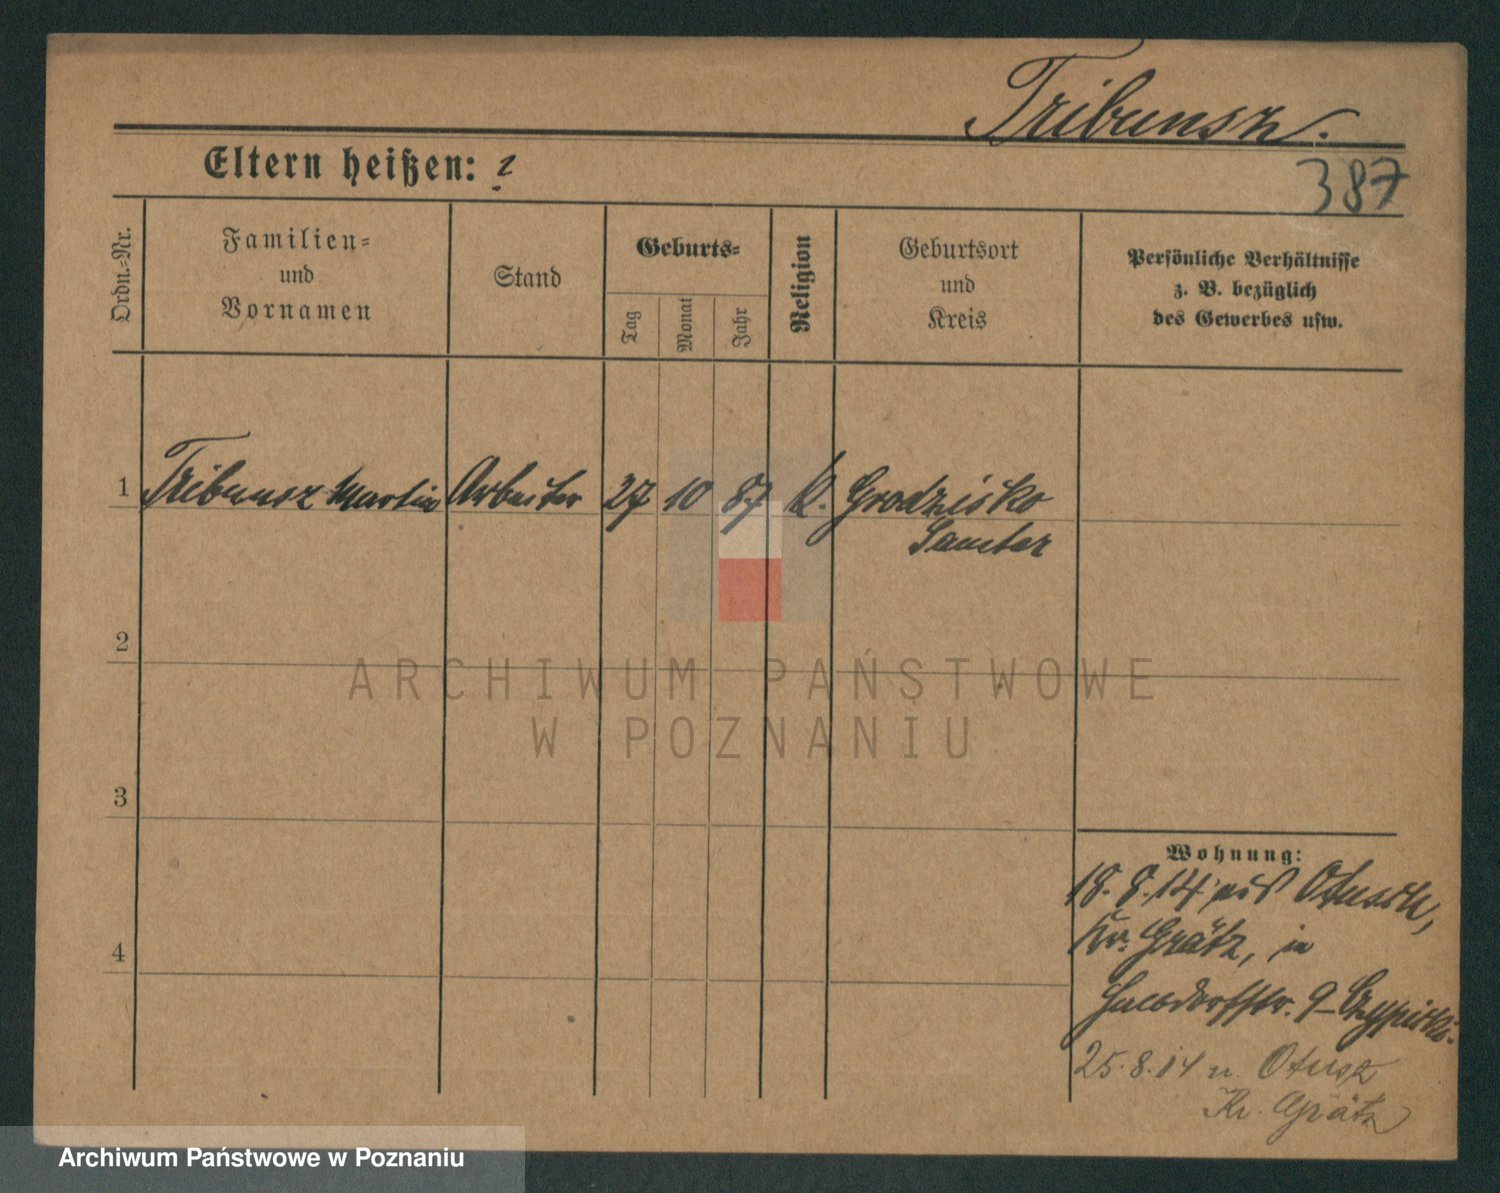 Tribunsz.
Eltern heißen: ?
387
Ordn.-Nr.
Familien- und Vornamen
Stand
Geburts-
Tag
Monat
Jahr
Religion
Geburtsort und Kreis
Persönliche Verhältnisse
z. B. bezüglich
des Gewerbes usw.
1 Tribunsz Martin Arbeiter 27 10 87 K. Grodzisko
Samter
2
ARCHIWUM PAŃSTWOWE
W POZNANIU
3
Wohnung:
18.8.14 aus Otusch,
Kr. Grätz, in
4
Halbdorfstr. 9
25.8.14 n. Otusz
Kr. Grätz
Archiwum Państwowe w Poznaniu